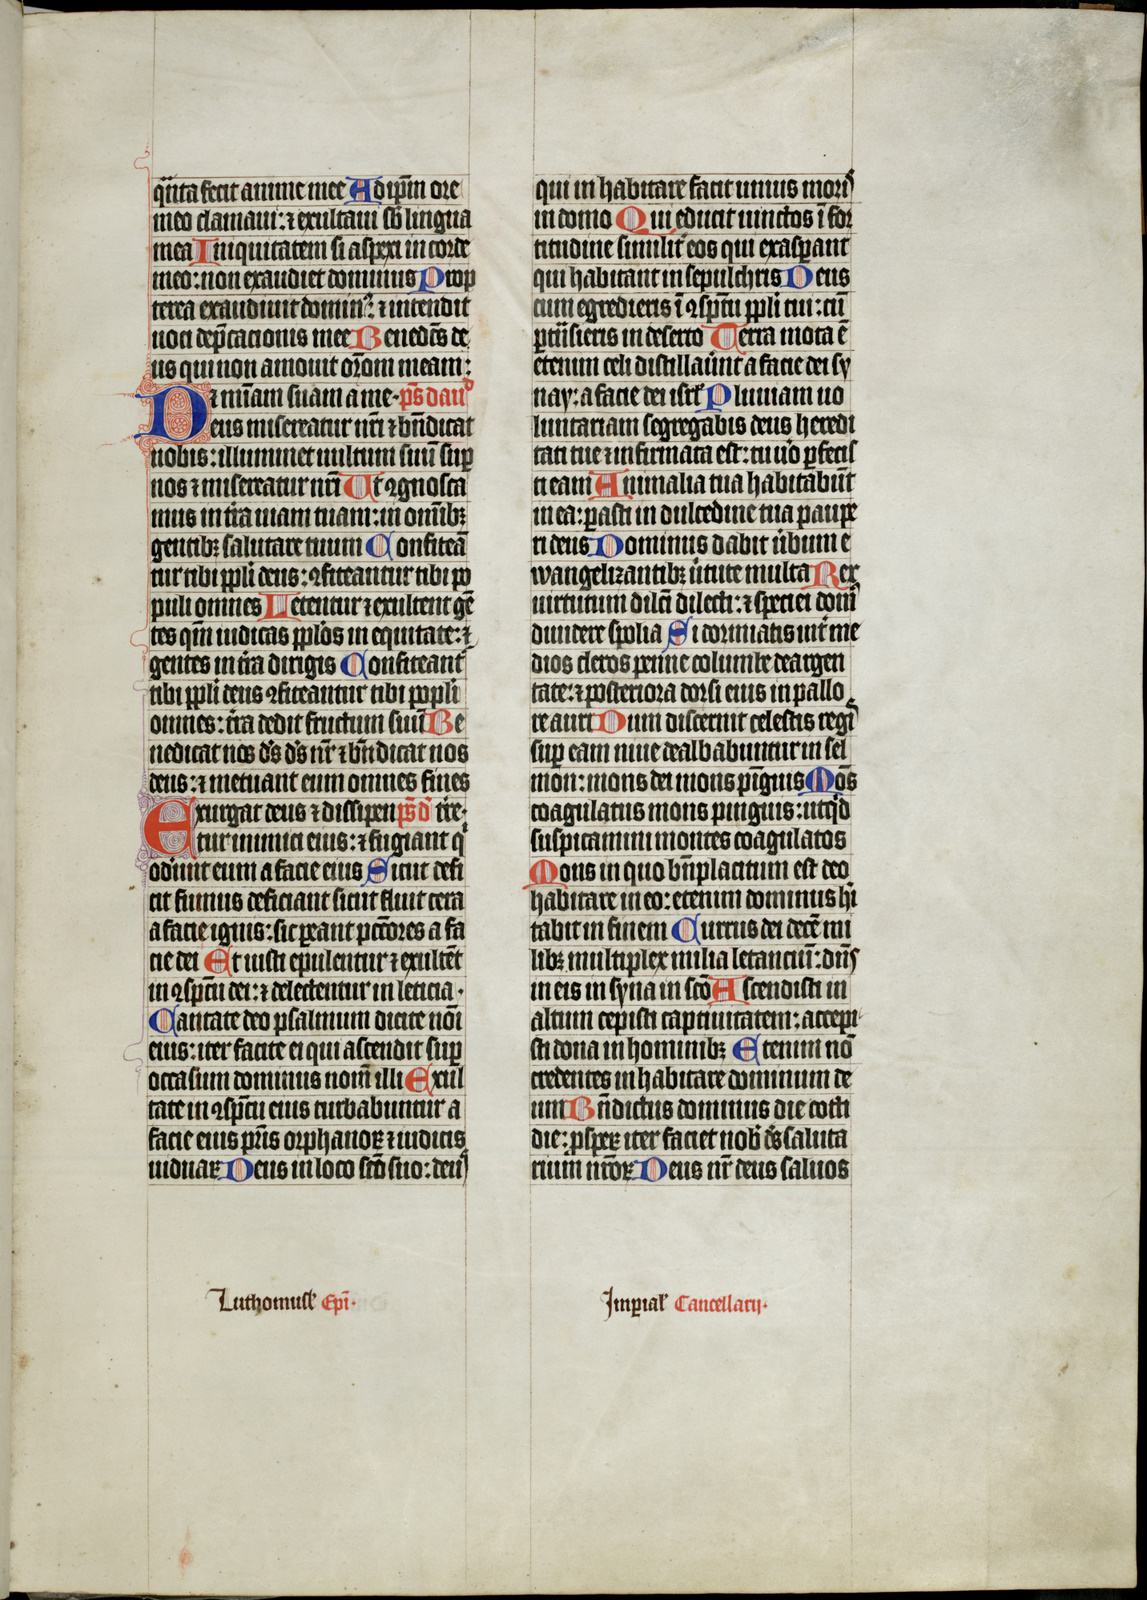 qūnta fecit anime mee Ad ip̄m ore
meo clamaui: ⁊ exultaui sb̄ lingua
mea Iniquitatem si aspexi in corde
meo: non exaudiet dominus Prop
terea exaudiuit dominꝰ: ⁊ intendit
uoci dep̄cacionis mee Benedc̄s de
us qui non amouit or̄om meam:
⁊ mīam suam a me · ps̄ dauid
Deus misereatur nr̄i ⁊ bn̄dicat
nobis: illuminet uultum suū suꝑ
nos ⁊ misereatur nr̄i Ut ꝯgnosca
mus in tr̄a uiam tuam: in om̄ibꝫ
gentibꝫ salutare tuum Confiteā
tur tibi ppl̄i deus: ꝯfiteantur tibi po
puli omnes Letentur ⁊ exultent gē
tes qm̄ iudicas ppl̄os in equitate: ⁊
gentes in tr̄a dirigis Confiteant᷑
tibi ppl̄i deus ꝯfiteantur tibi popl̄i
omnes: tr̄a dedit fructum suū Be
nedicat nos ds̄ ds̄ nr̄ ⁊ bn̄dicat nos
deus: ⁊ metuant eum omnes fines
Exurgat deus ⁊ dissipen ps̄ d̄ tr̄e·
tur inimici eius: ⁊ fugiant q̄
oder̄unt eum a facie eius Sicut defi
cit fumus deficiant sicut fluit cera
a facie ignis: sic ꝑeant pc̄tores a fa
cie dei Et iusti epulentur ⁊ exultēt
in ꝯsp̄cu dei: ⁊ delectentur in leticia ·
Cantate deo psalmum dicite no͞i
eius: iter facite ei qui ascendit suꝑ
occasum dominus nom̄ illi Exul
tate in ꝯsp̄cu eius turbabuntur a
facie eius pr̄is orphanoꝝ ⁊ iudicis
uiduaꝝ Deus in loco sc̄o suo: deus
qui in habitare facit unius moris
in domo Qui educit uinctos ī for
titudine similit᷑ eos qui exasꝑant
qui habitant in sepulchris Deus
cum egredieris ī ꝯsp̄cu ppl̄i tui: cū
ꝑtn̄sieris in deserto Terra mota ē
etenim celi distillauer̄nt a facie dei sy
nay: a facie dei isrl̄ Pluuiam uo
luntariam segregabis deus heredi
tati tue ⁊ infirmata est: tu uo ꝑfecis
ti eam Animalia tua habitabūt
in ea: parasti in dulcedine tua paupe
ri deus Dominus dabit ūbum e
wangelizantibꝫ ūtute multa Rex
uirtutum dilc̄i dilecti: ⁊ speciei domꝰ
diuidere spolia Si dormiatis int᷑ me
dios cleros penne columbe deargen
tate: ⁊ posteriora dorsi eius in pallo
re auri Dum discernit celestis regē
suꝑ eam niue dealbabuntur in sel
mon: mons dei mons pīguis Mōs
coagulatus mons pinguis: utq̇d
suspicamini montes coagulatos
Mons in quo bn̄placitum est deo
habitare in eo: etenim dominus hī
tabit in finem Currus dei decē mi
libꝫ multiplex milia letanciū: dn̄s
in eis in syna in sc̄o Ascendisti in
altum cepisti captiuitatem: accepi
sti dona in hominibꝫ Etenim nō
credentes in habitare dominum de
um Bn̄dictus dominus die cotti
die: ꝓspeꝝ iter faciet nob̄ ds̄ saluta
rium nr̄oꝝ Deus nr̄ deus saluos
Luthomusl̄ Epī·
Imꝑial̄ Cancellarij·